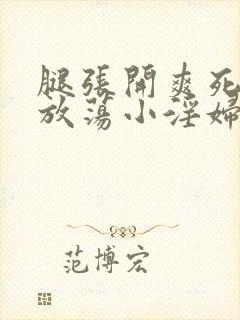 腿張開爽死
放蕩小淫婦
范博宏